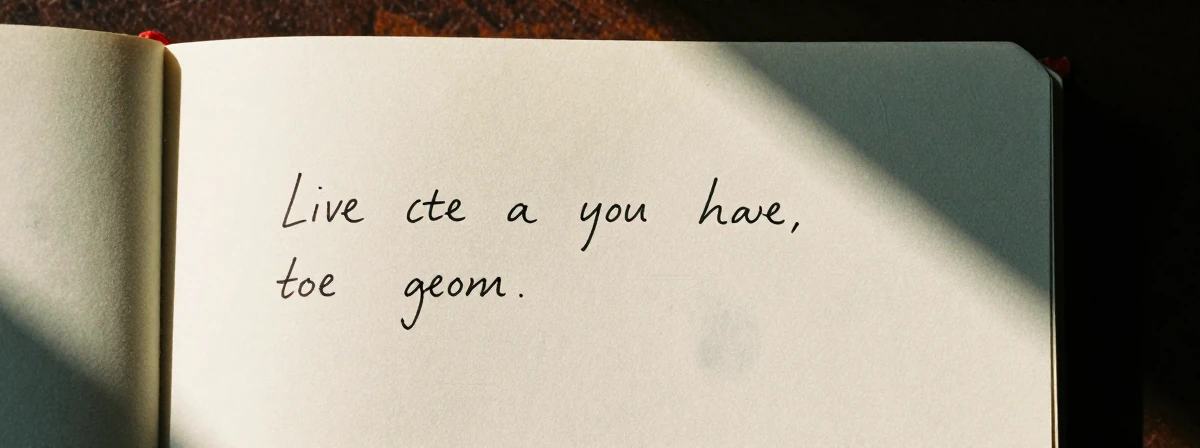 Live cte a you have,
toe geom.